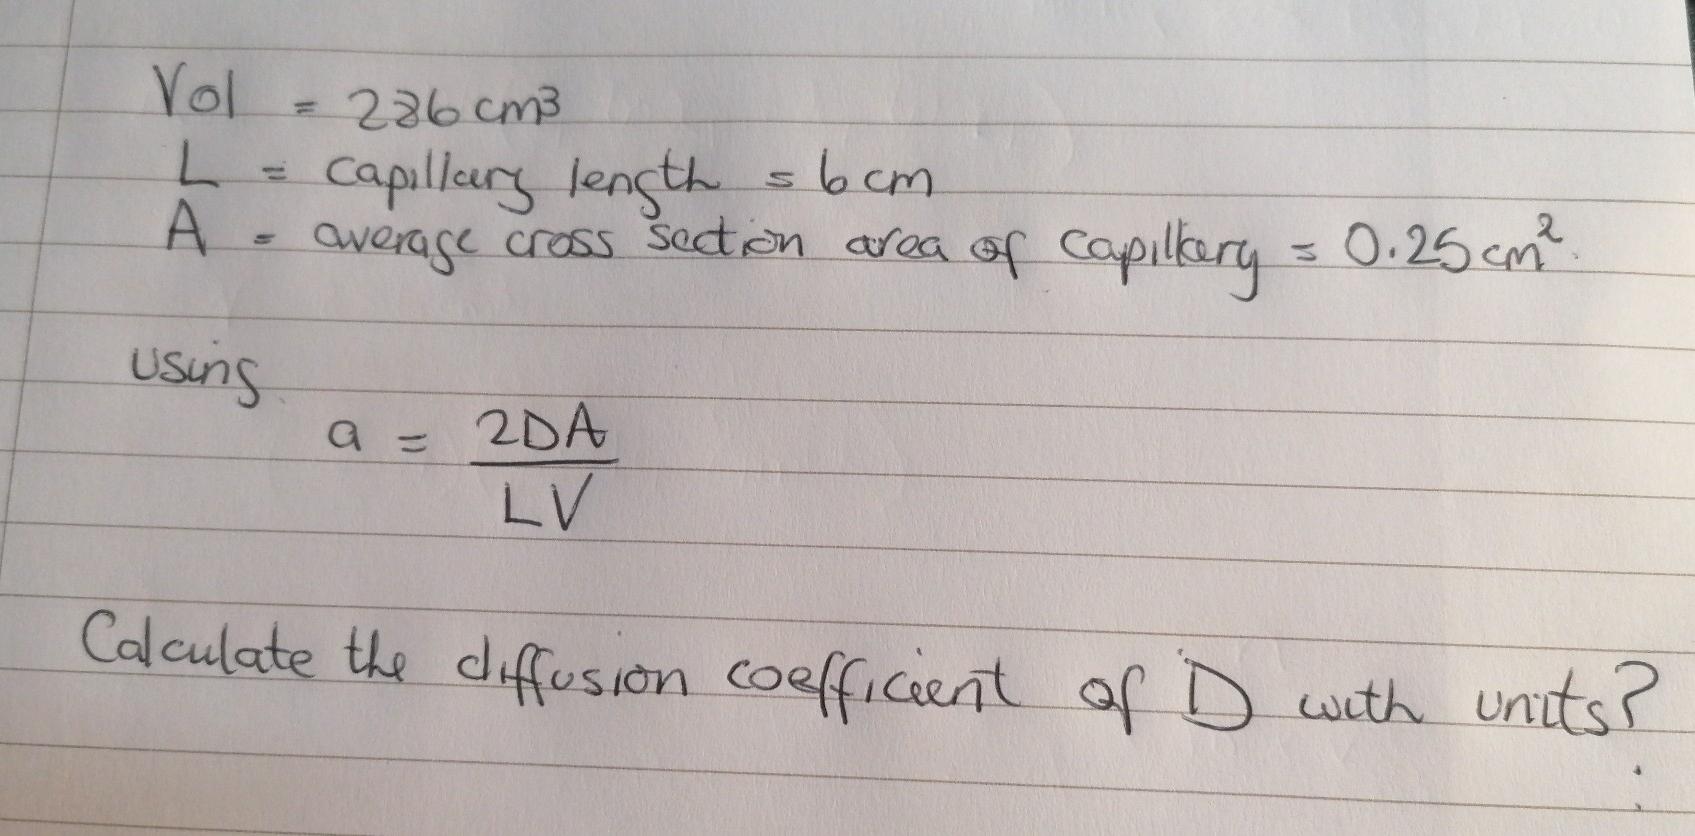 Vol = 236 cm³
L = capillary length = 6 cm
A = average cross section area of capillary = 0.25 cm².
using
a = 2DA
LV
Calculate the diffusion coefficient of D with units?